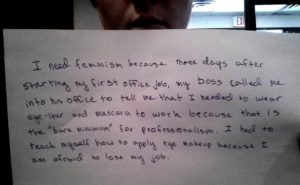 EXIT
I need feminism because three days after
starting my first office job, my boss called me
into his office to tell me that I needed to wear
eye-liner and mascara to work because that is
the "bare minimum" for professionalism. I had to
teach myself how to apply eye makeup because I
am afraid to lose my job.